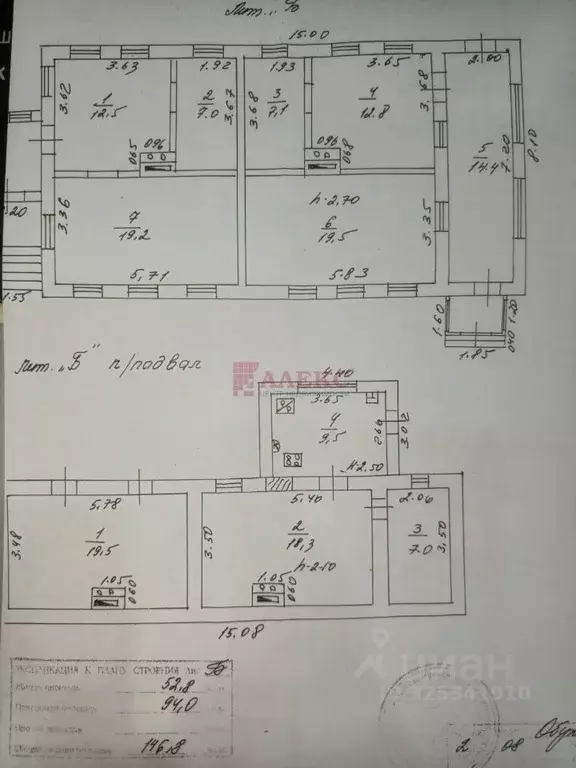 Лит. „Б
15.00
3.63 1.92 1.93 3.65 2.00
3.62
1
12.5
2
7.0
3.67
3.68
3
7.1
4
12.8
3.68
5
14.4
7.20
8.10
0.65 0.96 0.96 0.68
h-2,70
3.36
7
19.2
6
19.5
3.35
1.20
5,71 5.83
1.55
1.60 0.40 1.20
1.85
лит. „Б" п/подвал
АЛЕКС
4.40
3.65
4
9,5
2.66
3.02
H-2.50
5,78 5,40 2.06
3.48
1
19,5
3.50
2
18,3
h-2.10
3
7.0
3,50
1.05 0.60 1.05 0.60
15.08
ЭКСПЛИКАЦИЯ К ПЛАНУ СТРОЕНИЯ Лит Б
52,8
94,0
146,8
циан
325341910
2 08
Обух